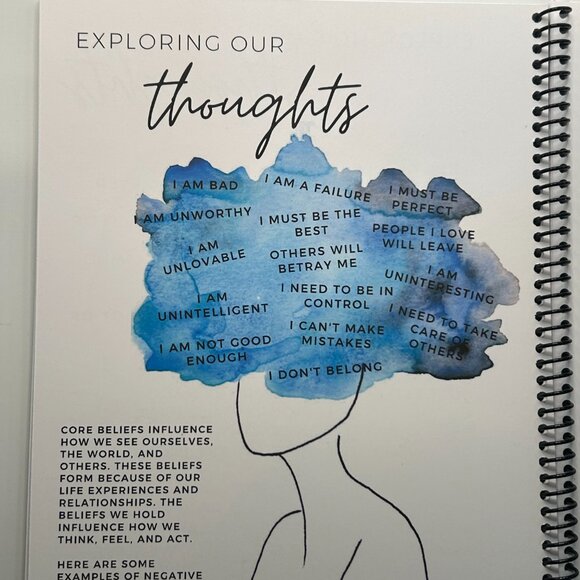 EXPLORING OUR
thoughts
I AM BAD
I AM A FAILURE
I MUST BE
PERFECT
I AM UNWORTHY
I MUST BE THE
BEST
PEOPLE I LOVE
WILL LEAVE
I AM
UNLOVABLE
OTHERS WILL
BETRAY ME
I AM
UNINTERESTING
I AM
UNINTELLIGENT
I NEED TO BE IN
CONTROL
I NEED TO TAKE
CARE OF
OTHERS
I AM NOT GOOD
ENOUGH
I CAN'T MAKE
MISTAKES
I DON'T BELONG
CORE BELIEFS INFLUENCE
HOW WE SEE OURSELVES,
THE WORLD, AND
OTHERS. THESE BELIEFS
FORM BECAUSE OF OUR
LIFE EXPERIENCES AND
RELATIONSHIPS. THE
BELIEFS WE HOLD
INFLUENCE HOW WE
THINK, FEEL, AND ACT.
HERE ARE SOME
EXAMPLES OF NEGATIVE